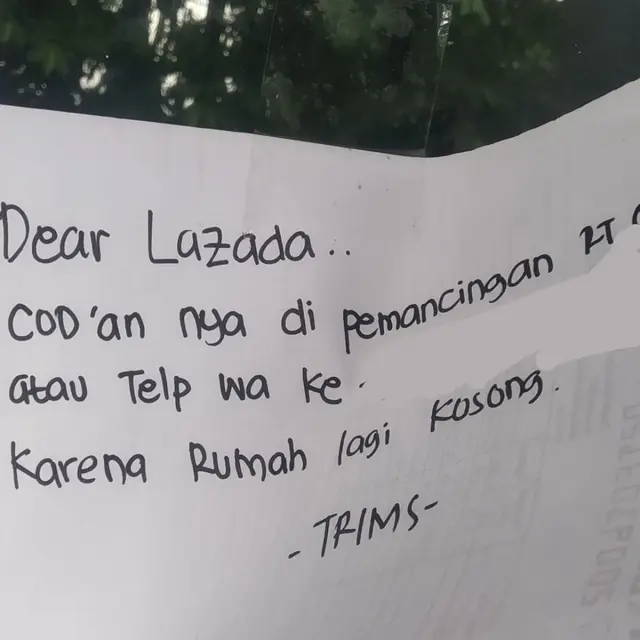 Dear Lazada..
COD'an nya di pemancingan RT
atau Telp wa ke.
Karena Rumah lagi kosong.
- TRIMS -